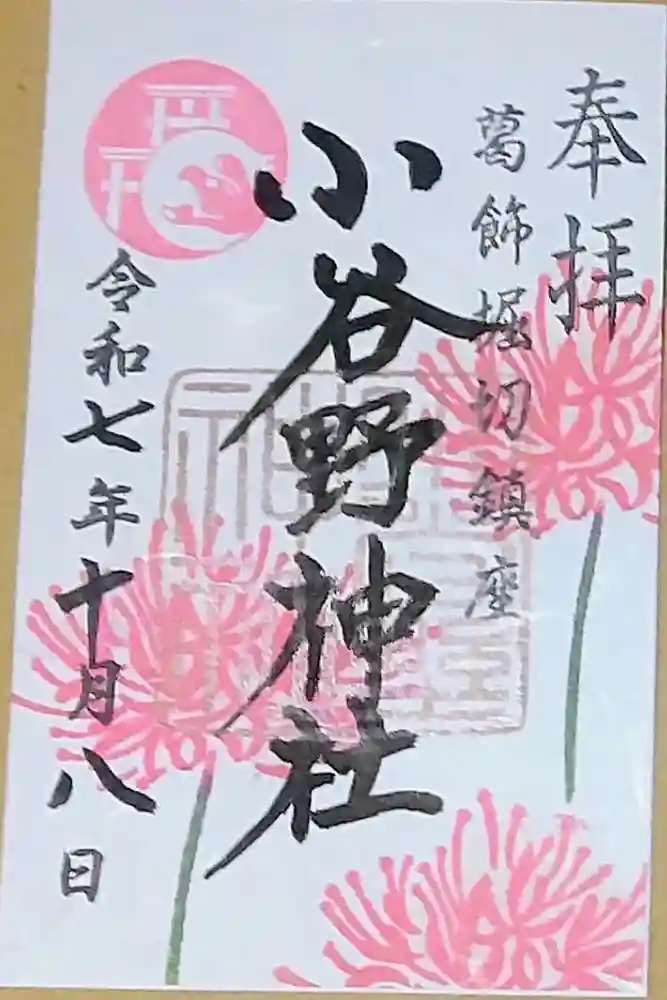 奉拝
葛飾堀切鎮座
小谷野神社
令和七年十月八日